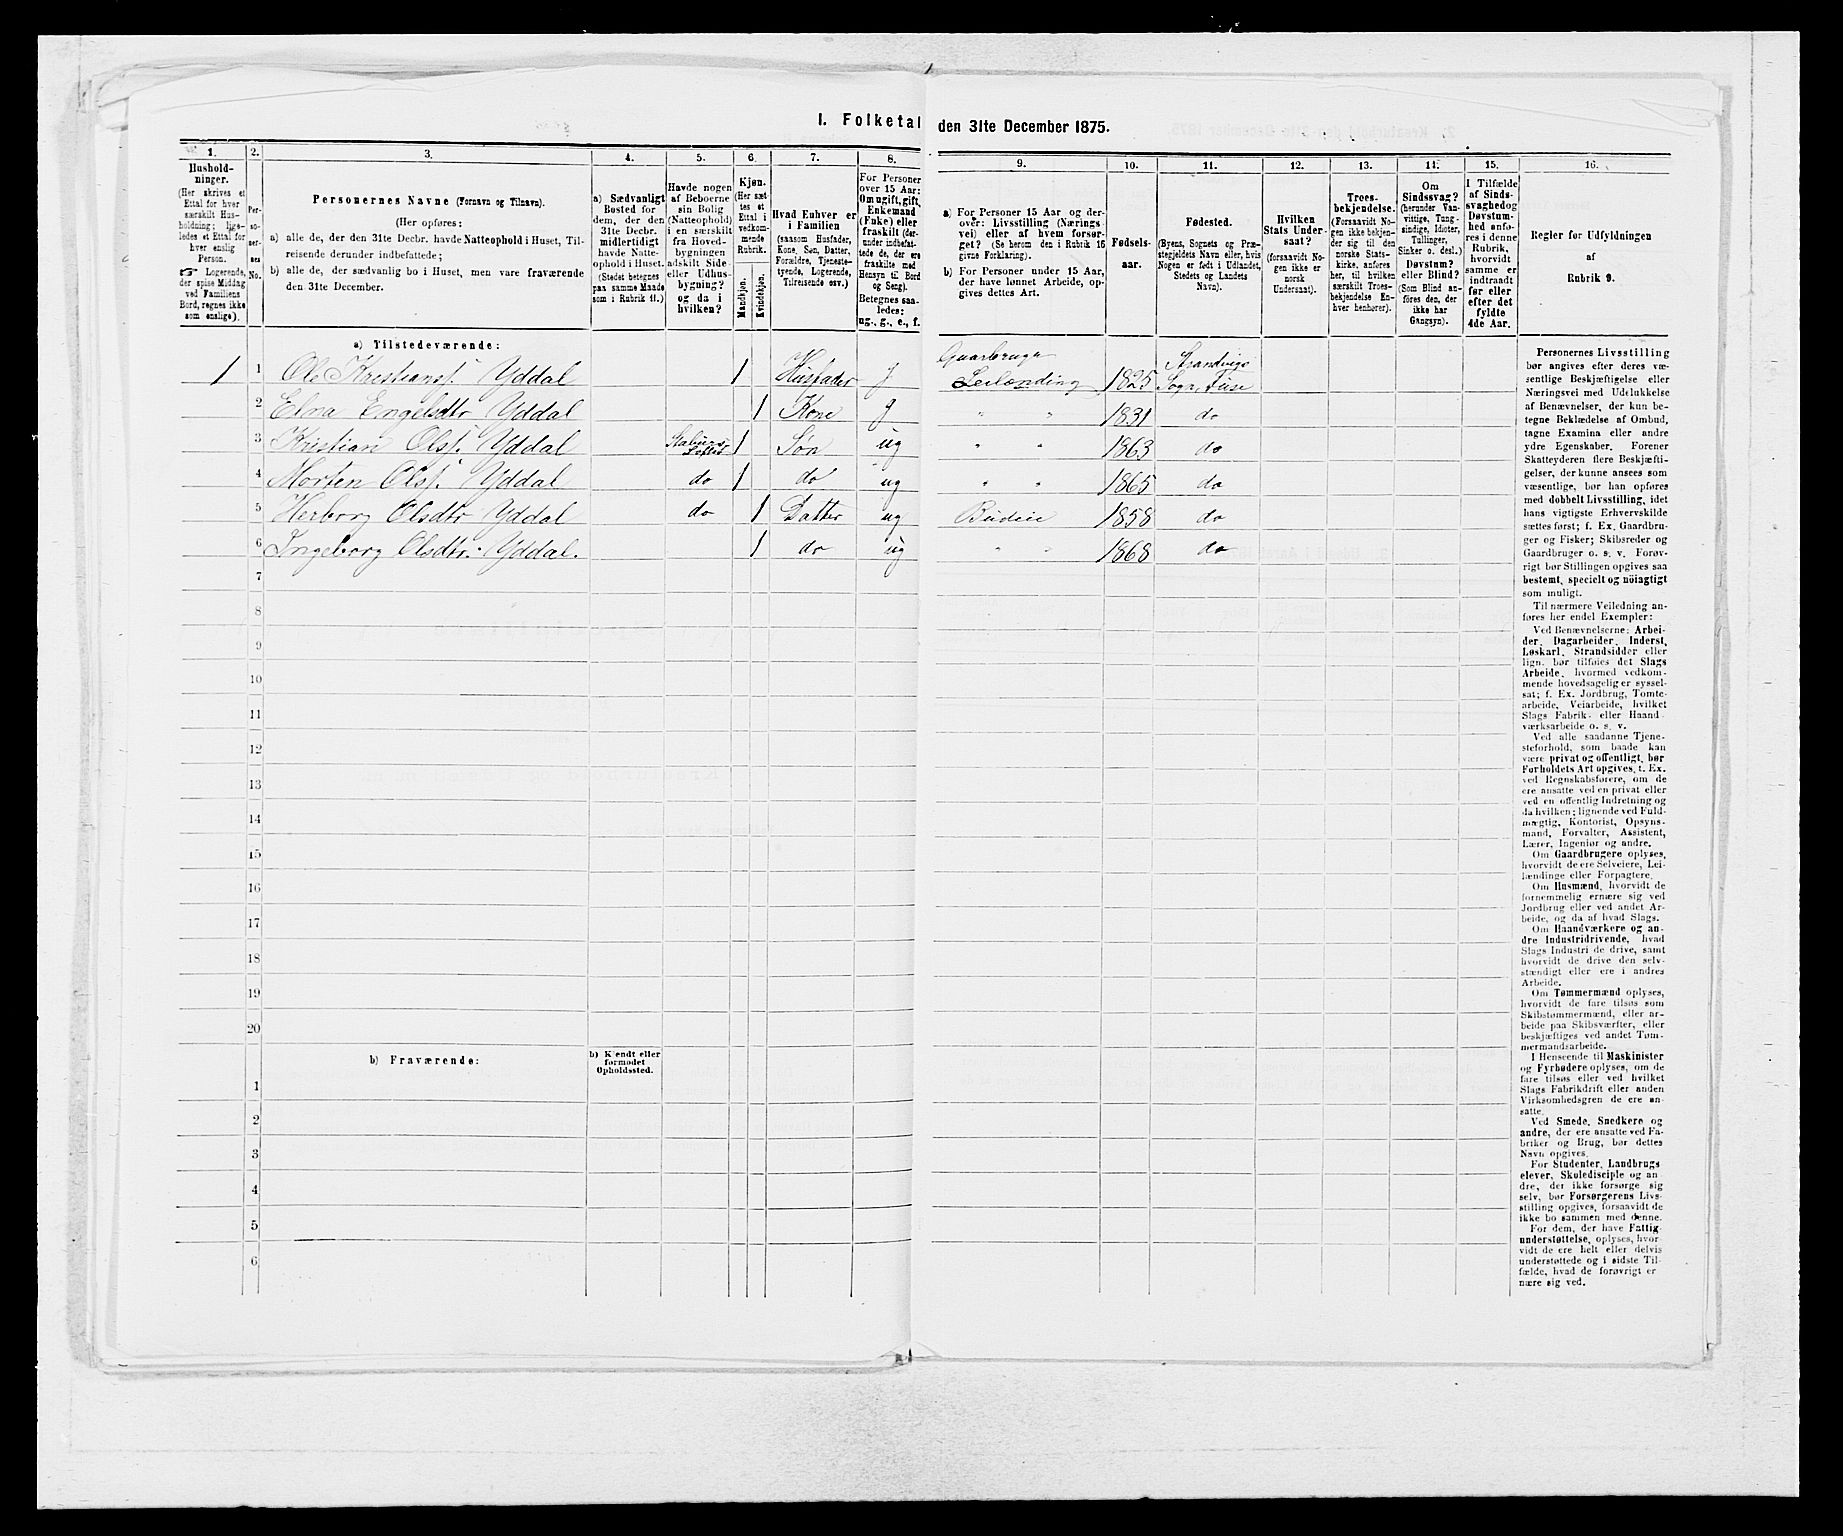 I. Folketal den 31te December 1875.
1. 2. 3. 4. 5. 6. 7. 8. 9. 10. 11. 12. 13. 14. 15. 16.
Hushold-
ninger.
(Her skrives et
Ettal for hver
særskilt Hus-
holdning; lige-
ledes et Ettal for
hver enslig
Person.
☞ Logerende,
der spise Middag
ved Familiens
Bord, regnes ikke
som enslige).
Per-
so-
ner-
nes
No.
Personernes Navne (Fornavn og Tilnavn).
(Her opføres:
a) alle de, der den 31te Decbr. havde Natteophold i Huset, Til-
reisende derunder indbefattede;
b) alle de, der sædvanlig bo i Huset, men vare fraværende
den 31te December.
a) Sædvanligt
Bosted for
dem, der den
31te Decbr.
midlertidigt
havde Natte-
ophold i Huset.
(Stedet betegnes
paa samme Maade
som i Rubrik 11.)
Havde nogen
af Beboerne
sin Bolig
(Natteophold)
i en særskilt
fra Hoved-
bygningen
adskilt Side-
eller Udhus-
bygning?
og da i
hvilken?
Kjøn.
(Her sæt-
tes et
Ettal i
vedkom-
mende
Rubrik.
Mandkjøn.
Kvindekjøn.
Hvad Enhver er
i Familien
(saasom Husfader,
Kone, Søn, Datter,
Forældre, Tjeneste-
tyende, Logerende,
Tilreisende osv.)
For Personer
over 15 Aar:
Om ugift, gift,
Enkemand
(Enke) eller
fraskilt (der-
under indbefat-
tede de, der ere
fraskilte med
Hensyn til Bord
og Seng).
Betegnes saa-
ledes:
ug., g., e., f.
a) For Personer 15 Aar og der-
over: Livsstilling (Nærings-
vei) eller af hvem forsør-
get? (Se herom den i Rubrik 16
givne Forklaring).
b) For Personer under 15 Aar,
der have lønnet Arbeide, op-
gives dettes Art.
Fødsels-
aar.
Fødested.
(Byens, Sognets og Præ-
stegjeldets Navn eller, hvis
Nogen er født i Udlandet,
Stedets og Landets
Navn).
Hvilken
Stats Under-
saat?
(forsaavidt No-
gen ikke er
norsk
Undersaat).
Troes-
bekjendelse.
(Forsaavidt No-
gen ikke bekjen-
der sig til den
norske Stats-
kirke, anføres
her, til hvilken
særskilt Troes-
bekjendelse En-
hver henhører).
Om
Sindssvag?
(herunder Van-
vittige, Tung-
sindige, Idioter,
Tullinger,
Sinker o. desl.)
Døvstum?
eller Blind?
(Som Blind an-
føres den, der
ikke har
Gangsyn).
I Tilfælde
af Sinds-
svaghed og
Døvstum-
hed anfø-
res i denne
Rubrik,
hvorvidt
samme er
indtraadt
før eller
efter det
fyldte
4de Aar.
Regler for Udfyldningen
af
Rubrik 9.
a) Tilstedeværende:
1 1 Ole Kristianst. Yddal 1 Husfader g Gaarbruger Leilænding 1825 Strandvigs Sogn, Fuse
2 Elna Engelsdtr Yddal 1 Kone g " " 1831 do
3 Kristian Olst. Yddal Staburs-Loftet 1 Søn ug " " 1863 do
4 Morten Olst. Yddal do 1 do ug " " 1865 do
5 Herborg Olsdtr Yddal do 1 Datter ug Budeie 1858 do
6 Ingeborg Olsdtr. Yddal. 1 do ug " " 1868 do
7
8
9
10
11
12
13
14
15
16
17
18
19
20
b) Fraværende: b) Kjendt eller
formodet
Opholdssted.
1
2
3
4
5
6
Personernes Livsstilling
bør angives efter deres væ-
sentlige Beskjæftigelse eller
Næringsvei med Udelukkelse
af Benævnelser, der kun be-
tegne Beklædelse af Ombud,
tagne Examina eller andre
ydre Egenskaber. Forener
Skatteyderen flere Beskjæfti-
gelser, der kunne ansees som
væsentlige, bør han opføres
med dobbelt Livsstilling, idet
hans vigtigste Erhvervskilde
sættes først; f. Ex. Gaardbru-
ger og Fisker; Skibsreder og
Gaardbruger o. s. v. Forøv-
rigt bør Stillingen opgives saa
bestemt, specielt og nöiagtigt
som muligt.
Til nærmere Veiledning an-
føres her endel Exempler:
Ved Benævnelserne: Arbei-
der, Dagarbeider, Inderst,
Løskarl, Strandsidder eller
lign. bør tilføies det Slags
Arbeide, hvormed vedkom-
mende hovedsagelig er syssel-
sat; f. Ex. Jordbrug, Tomte-
arbeide, Veiarbeide, hvilket
Slags Fabrik- eller Haand-
værksarbeide o. s. v.
Ved alle saadanne Tjene-
steforhold, som baade kan
være privat og offentligt, bør
Forholdets Art opgives, t. Ex.
ved Regnskabsførere, om de
ere ansatte ved en privat eller
ved en offentlig Indretning og
da hvilken; lignende ved Fuld-
mægtig, Kontorist, Opsyns-
mand, Forvalter, Assistent,
Lærer, Ingeniør og andre.
Om Gaardbrugere oplyses,
hvorvidt de ere Selveiere, Lei-
lændinge eller Forpagtere.
Om Husmænd, hvorvidt de
fornemmelig ernære sig ved
Jordbrug eller ved andet Ar-
beide, og da af hvad Slags.
Om Haandværkere og an-
dre Industridrivende, hvad
Slags Industri de drive, samt
hvorvidt de drive den selv-
stændigt eller ere i andres
Arbeide.
Om Tømmermænd oplyses,
hvorvidt de fare tilsøs som
Skibstømmermænd, eller ar-
beide paa Skibsværfter, eller
beskjæftiges ved andet Tøm-
mermandsarbeide.
I Henseende til Maskinister
og Fyrbødere oplyses, om de
fare tilsøs eller ved hvilket
Slags Fabrikdrift eller anden
Virksomhedsgren de ere an-
satte.
Ved Smede, Snedkere og
andre, der ere ansatte ved Fa-
briker og Brug, bør dettes
Navn opgives.
For Studenter, Landbrugs
elever, Skoledisciple og an
dre, der ikke forsørge sig
selv, bør Forsørgerens Livs-
stilling opgives, forsaavidt de
ikke bo sammen med denne.
For dem, der have Fattig
understøttelse, oplyses, hvor-
vidt de ere helt eller delvis
understøttede og i sidste Til-
fælde, hvad de forøvrigt er
nære sig ved.